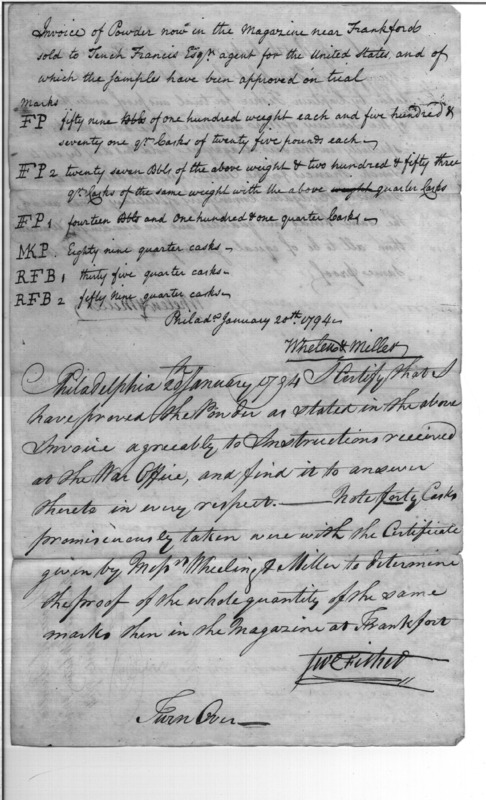 Invoice of Powder now in the Magazine near Frankford
sold to Tench Francis Esqr. agent for the United States, and of
which the samples have been approved on trial
Marks
FP fifty nine Bbls of one hundred weight each and five hundred &
seventy one qr. Casks of twenty five pounds each
FP 2 twenty seven Bbls of the above weight & two hundred & fifty three
qr. Casks of the same weight with the above weight quarter Casks
FP 1 fourteen Bbls and One hundred & one quarter Casks
MKP. Eighty nine quarter casks
RFB 1 thirty five quarter casks
RFB 2 fifty nine quarter casks
Philada. January 20th. 1794
Whelen & Miller
Philadelphia January 1794 I Certify, that I
have proved the Powder as stated in the above
Invoice agreeably to Instructions received
at the War Office, and find it to answer
thereto in every respect. — Note forty Casks
promiscuously taken were with the Certificate
given by Messrs Wheeling & Miller to determine
the proof of the whole quantity of the same
marks then in the Magazine at Frankfort
Turn Over